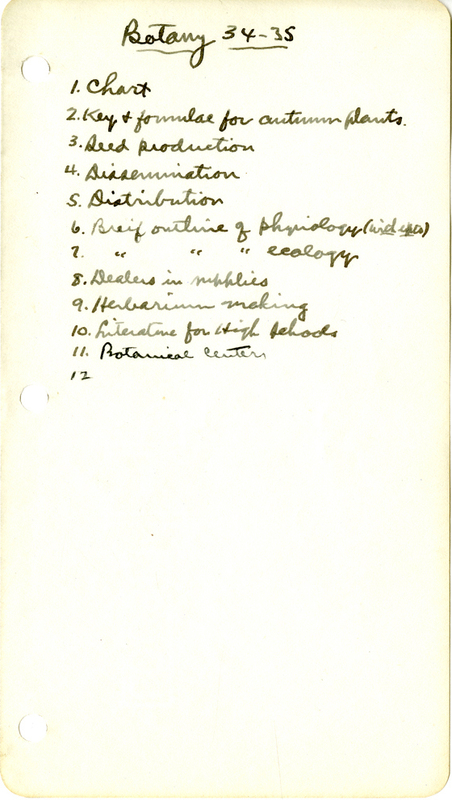 Botany 34-35
1. Chart
2. Key & formulae for autumn plants.
3. Seed production
4. Dissemination
5. Distribution
6. Breif outline of physiology (incl expts)
7. " " " ecology
8. Dealers in supplies
9. Herbarium making
10. Literature for High Schools
11. Botanical Centers
12